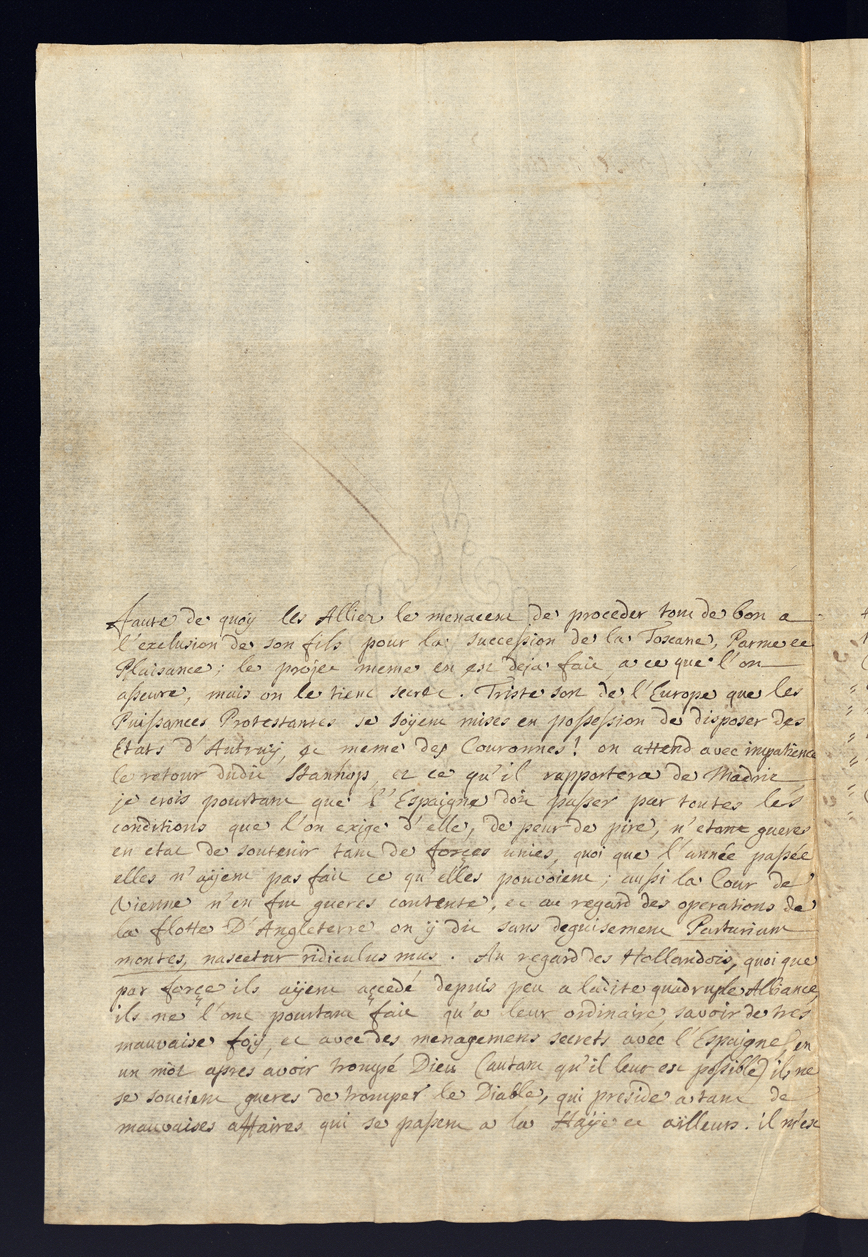 faute de quoy les Alliez le menacent de proceder tout de bon a
l'exclusion de son fils pour la succession de la Toscane, Parme et
Plaisance; le projet meme en est deja fait, a ce que l'on
asseure, mais on le tient secret. Triste sort de l'Europe que les
Puissances Protestantes se soyent mises en possession de disposer des
Etats d'Autruÿ, et meme des Couronnes! on attend avec impatience
le retour dudit Stanhop, et ce qu'il rapportera de Madrit
je crois pourtant que l'Espaigne doit passer par toutes les
conditions que l'on exige d'elle, de peur de pire, n'etant gueres
en etat de soutenir tant de forces unies, quoi que l'année passée
elles n'aÿent pas fait ce qu'elles pouvoient; aussi la Cour de
Vienne n'en fut gueres contente, et au regard des operations de
la flotte D'Angleterre on ÿ dit sans deguisement Parturiunt
montes, nascetur ridiculus mus. Au regard des Hollandois, quoi que
par force ils aÿent accedé depuis peu a ladite quadruple Alliance,
ils ne l'ont pourtant fait qu'a leur ordinaire, savoir de tres
mauvaise foÿ, et avec des menagemens secrets avec l'Espaigne, en
un mot apres avoir trompé Dieu (autant qu'il leur est possible) ils ne
se soucient gueres de tromper le Diable, qui preside a tant de
mauvaises affaires qui se passent a la Haÿe et ailleurs. il m'est